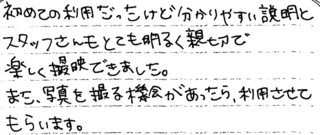 初めての利用だったけど分かりやすい説明と
スタッフさんもとても明るく親切で
楽しく撮影できました。
また、写真を撮る機会があったら、利用させて
もらいます。